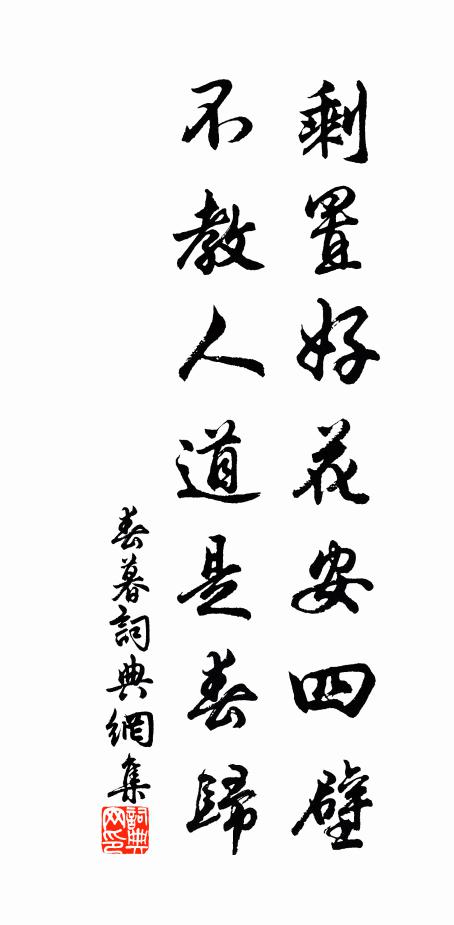 剩置好花安四壁
不教人道是春歸
春暮詞典網集
詞典网印